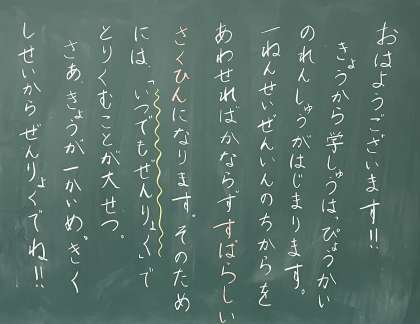 おはようございます!!
きょうから学しゅうは、ぴょうかい
のれんしゅうがはじまります。
一ねんせいぜんいんのちからを
あわせればかならずすばらしい
さくひんになります。そのため
には、「いつでもぜんりょく」で
とりくむことが大せつ。
さあきょうが一かいめ。きく
しせいからぜんりょくでね!!